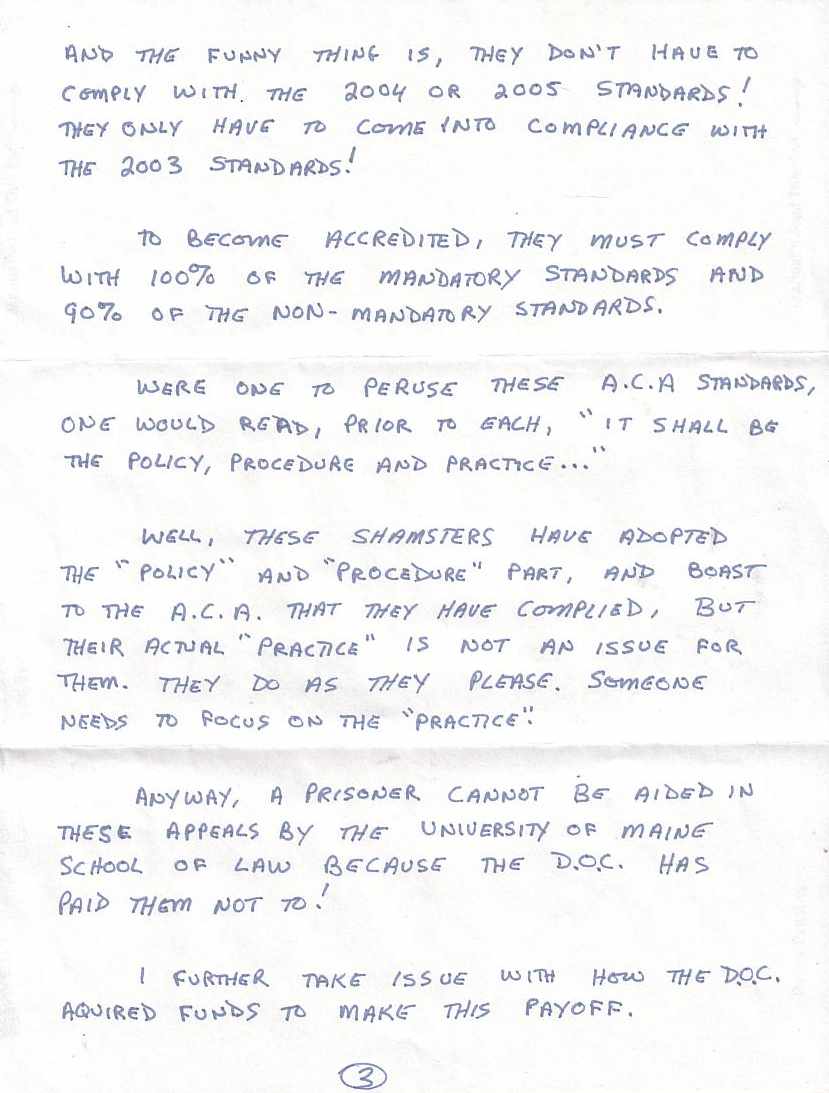 AND THE FUNNY THING IS, THEY DON'T HAVE TO
COMPLY WITH THE 2004 OR 2005 STANDARDS!
THEY ONLY HAVE TO COME INTO COMPLIANCE WITH
THE 2003 STANDARDS!
TO BECOME ACCREDITED, THEY MUST COMPLY
WITH 100% OF THE MANDATORY STANDARDS AND
90% OF THE NON-MANDATORY STANDARDS.
WERE ONE TO PERUSE THESE A.C.A STANDARDS,
ONE WOULD READ, PRIOR TO EACH, "IT SHALL BE
THE POLICY, PROCEDURE AND PRACTICE..."
WELL, THESE SHAMSTERS HAVE ADOPTED
THE "POLICY" AND "PROCEDURE" PART, AND BOAST
TO THE A.C.A. THAT THEY HAVE COMPLIED, BUT
THEIR ACTUAL "PRACTICE" IS NOT AN ISSUE FOR
THEM. THEY DO AS THEY PLEASE. SOMEONE
NEEDS TO FOCUS ON THE "PRACTICE".
ANYWAY, A PRISONER CANNOT BE AIDED IN
THESE APPEALS BY THE UNIVERSITY OF MAINE
SCHOOL OF LAW BECAUSE THE D.O.C. HAS
PAID THEM NOT TO!
I FURTHER TAKE ISSUE WITH HOW THE D.O.C.
AQUIRED FUNDS TO MAKE THIS PAYOFF.
3